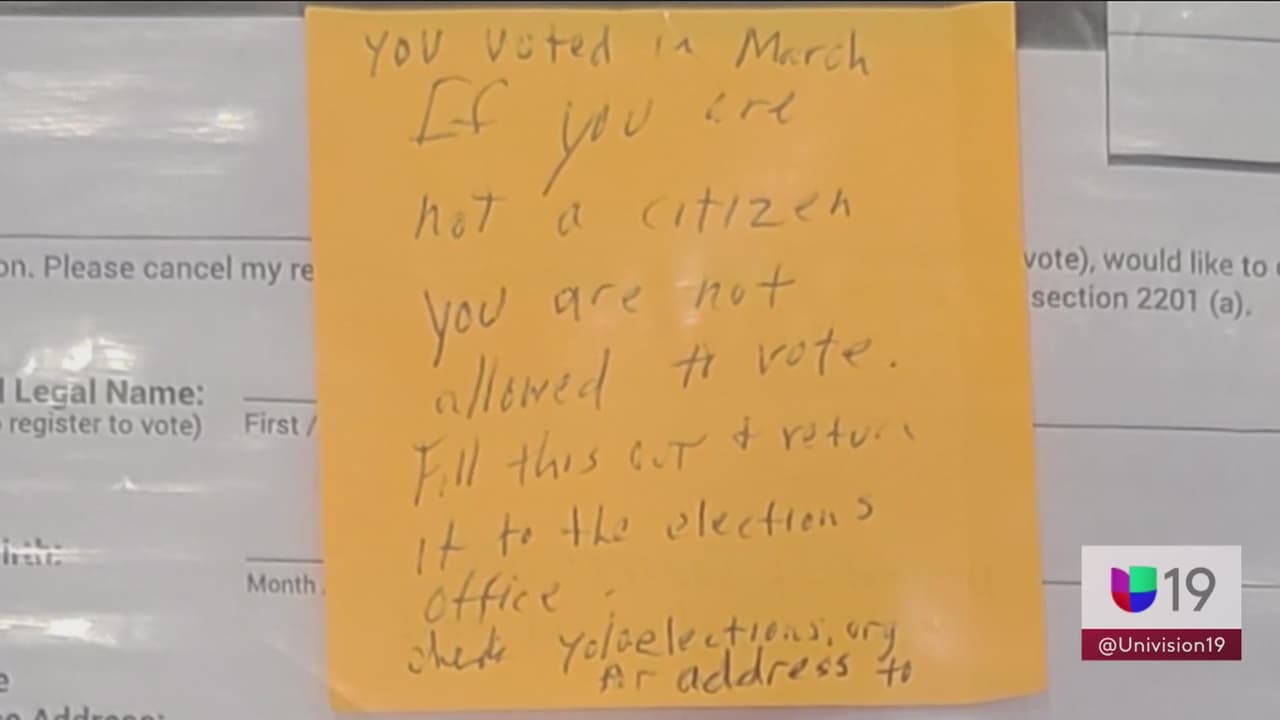 You voted in March
If you are
not a citizen
you are not
allowed to vote.
Fill this out & return
it to the elections
office.
check yoloelections.org
for address to
on. Please cancel my re
vote), would like to
section 2201 (a).
Legal Name:
register to vote)
First /
irth:
Month
Address:
19
@Univision19